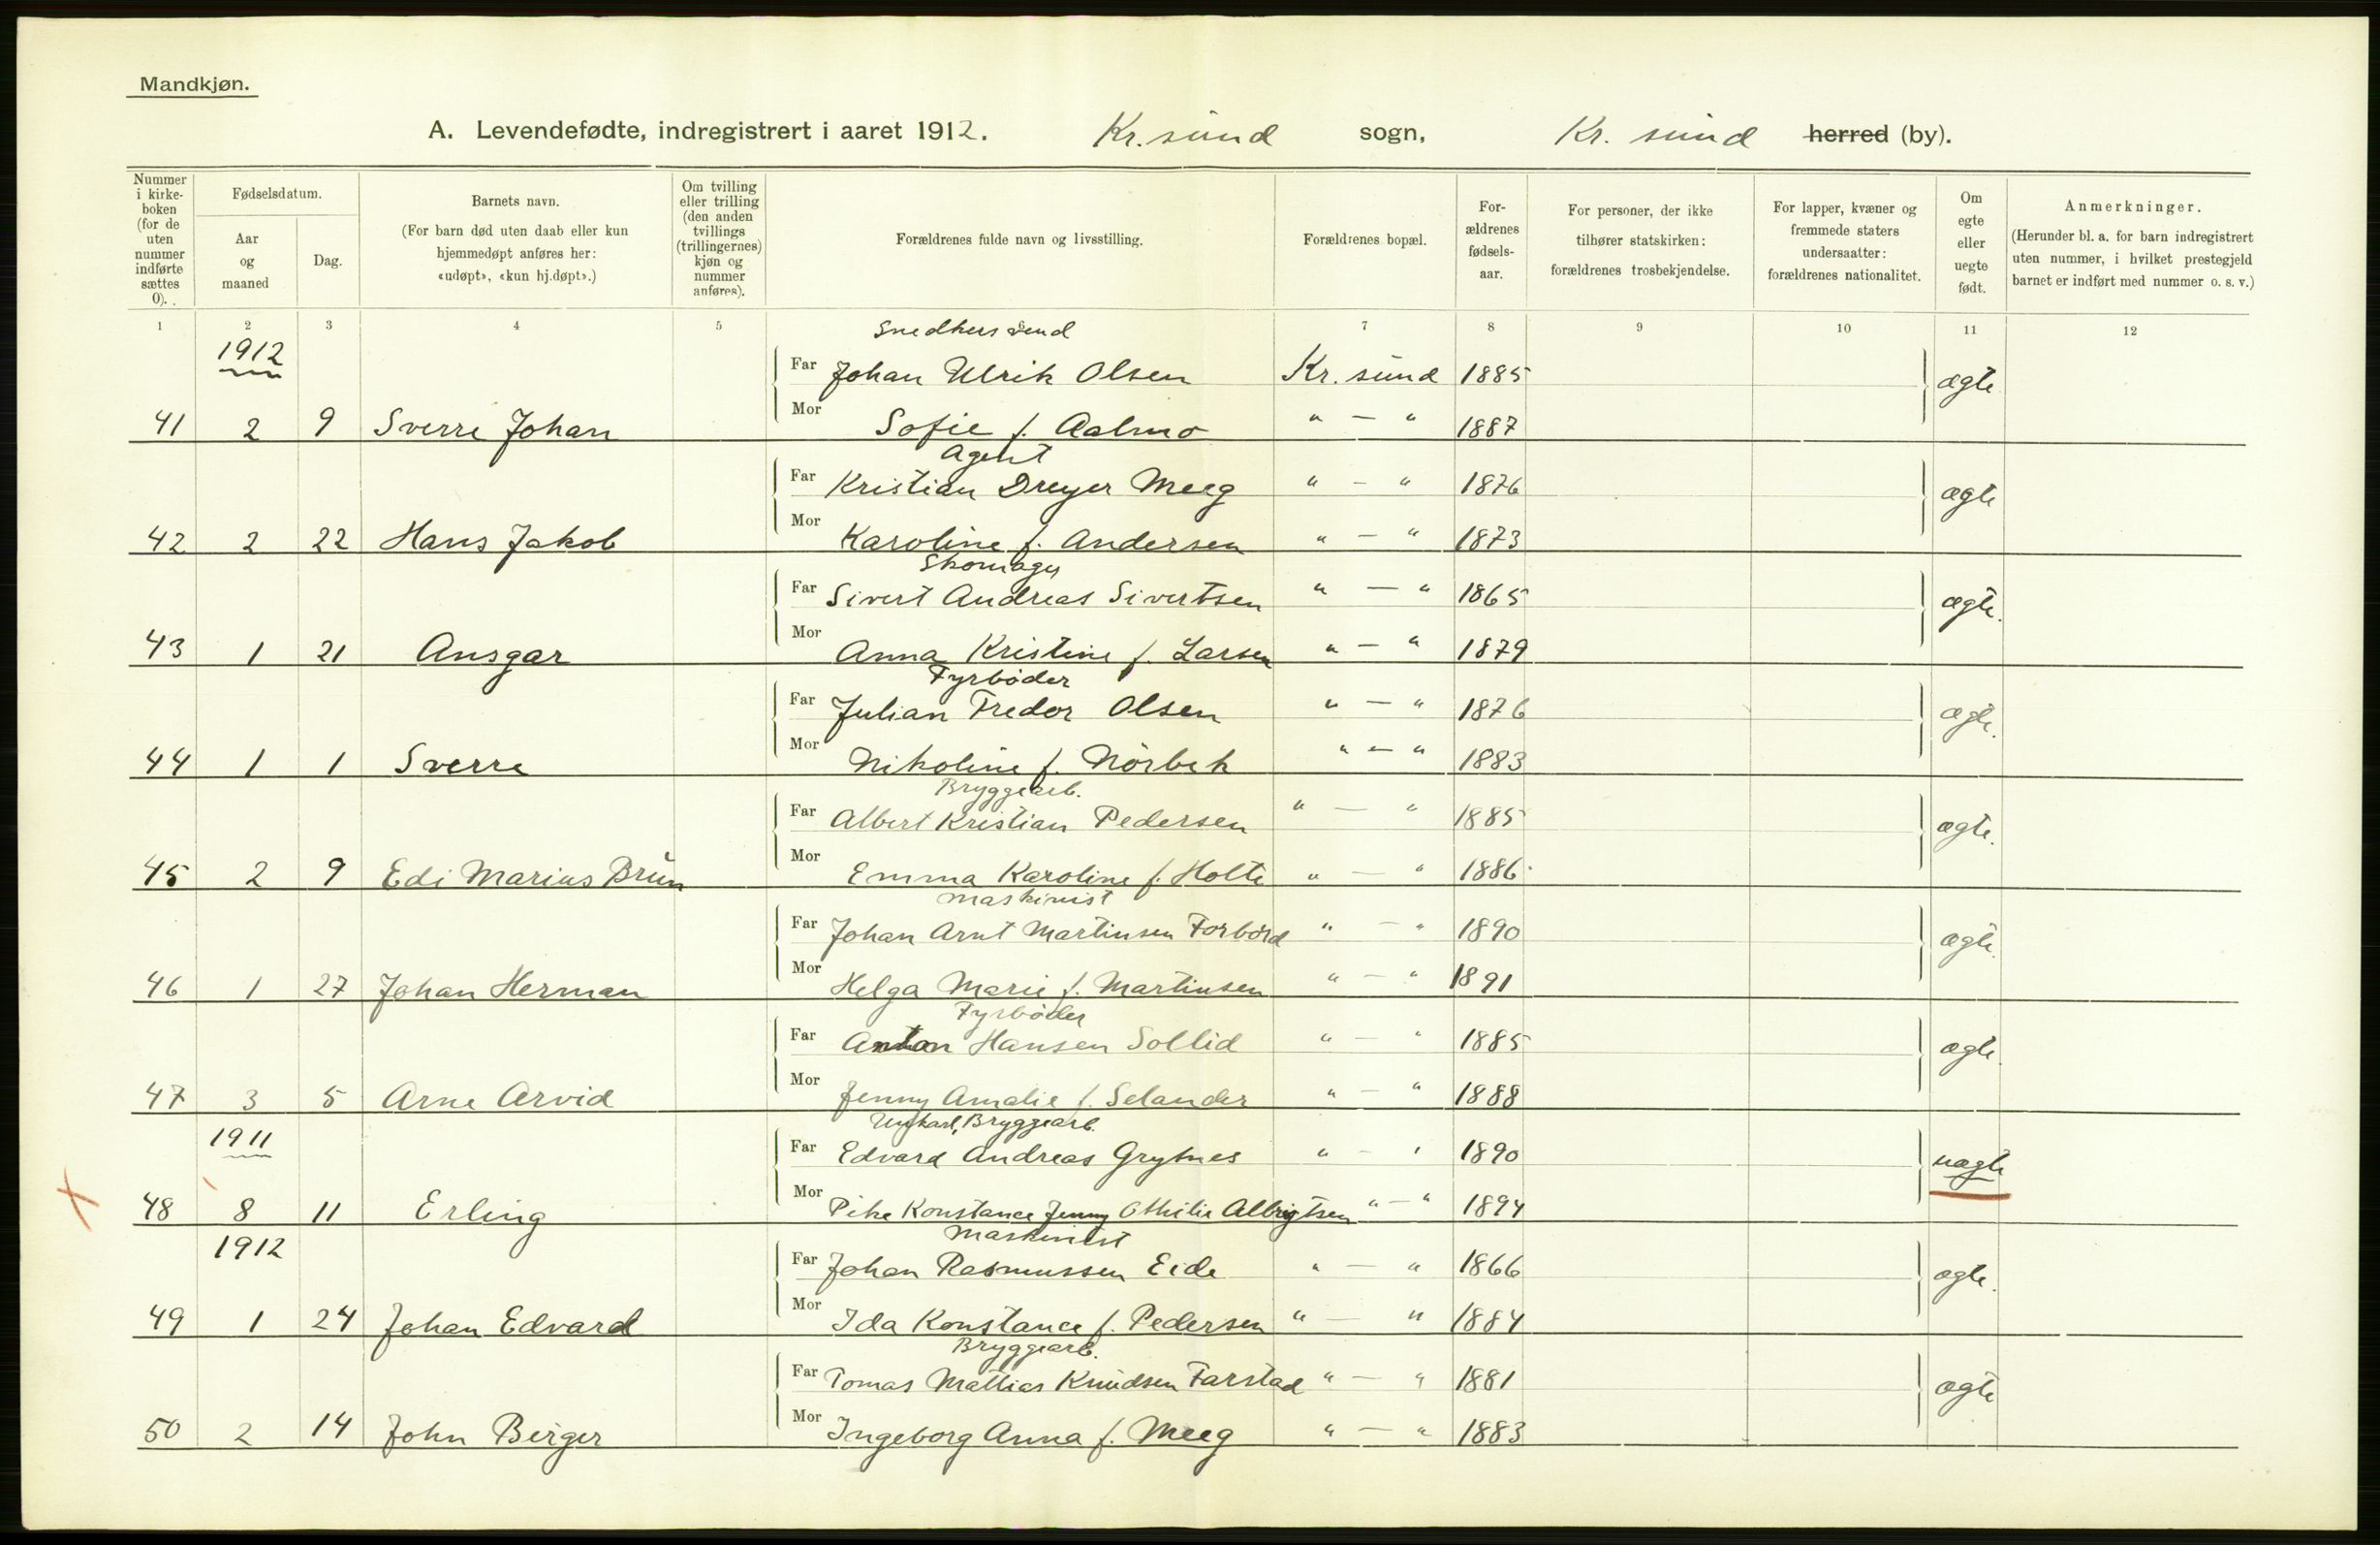 Mandkjøn.
A. Levendefødte, indregistrert i aaret 1912. Kr. sund sogn, Kr. sund herred (by).
Nummer i kirke-boken (for de uten nummer indførte sættes 0).
Fødselsdatum.
Aar og maaned
Dag.
Barnets navn.
(For barn død uten daab eller kun hjemmedøpt anføres her: «udøpt», «kun hj.døpt».)
Om tvilling eller trilling (den anden tvillings (trillingernes) kjøn og nummer anføres).
Forældrenes fulde navn og livsstilling.
Forældrenes bopæl.
For-ældrenes fødsels-aar.
For personer, der ikke tilhører statskirken: forældrenes trosbekjendelse.
For lapper, kvæner og fremmede staters undersaatter: forældrenes nationalitet.
Om egte eller uegte født.
Anmerkninger.
(Herunder bl. a. for barn indregistrert uten nummer, i hvilket prestegjeld barnet er indført med nummer o. s. v.)
1 2 3 4 5 6 7 8 9 10 11 12
1912
Snedkersvend
Far Johan Ulrik Olsen Kr. sund 1885 ægte
41 2 9 Sverre Johan Mor Sofie f. Aalmo " — " 1887
Agent
Far Kristian Dreyer Meeg " — " 1876 ægte
42 2 22 Hans Jakob Mor Karoline f. Andersen " — " 1873
Skomager
Far Sivert Andreas Sivertsen " — " 1865 ægte.
43 1 21 Ansgar Mor Anna Kristine f. Larsen " — " 1879
Fyrbøder
Far Julian Fredor Olsen " — " 1876 ægte.
44 1 1 Sverre Mor Nikoline f. Nørbek " — " 1883
Bryggearb.
Far Albert Kristian Pedersen " — " 1885 ægte.
45 2 9 Edi Marius Brun Mor Emma Karoline f. Holte " — " 1886
Maskinist
Far Johan Arnt Martinsen Forbord " — " 1890 ægte.
46 1 27 Johan Herman Mor Helga Marie f. Martinsen " — " 1891
Fyrbøder
Far Anton Hansen Sollid " — " 1885 ægte.
47 3 5 Arne Arvid Mor Jenny Amalie f. Selander " — " 1888
1911
Ungkarl, Bryggearb.
Far Edvard Andreas Grytnes " — " 1890 uægte
48 8 11 Erling Mor Pike Konstance Jenny Othilie Albrigtsen " — " 1894
1912
Maskinist
Far Johan Rasmussen Eide " — " 1866 ægte.
49 1 24 Johan Edvard Mor Ida Konstance f. Pedersen " — " 1884
Bryggearb.
Far Tomas Mathias Knudsen Farstad " — " 1881 ægte
50 2 14 John Berger Mor Ingeborg Anna f. Meeg " — " 1883